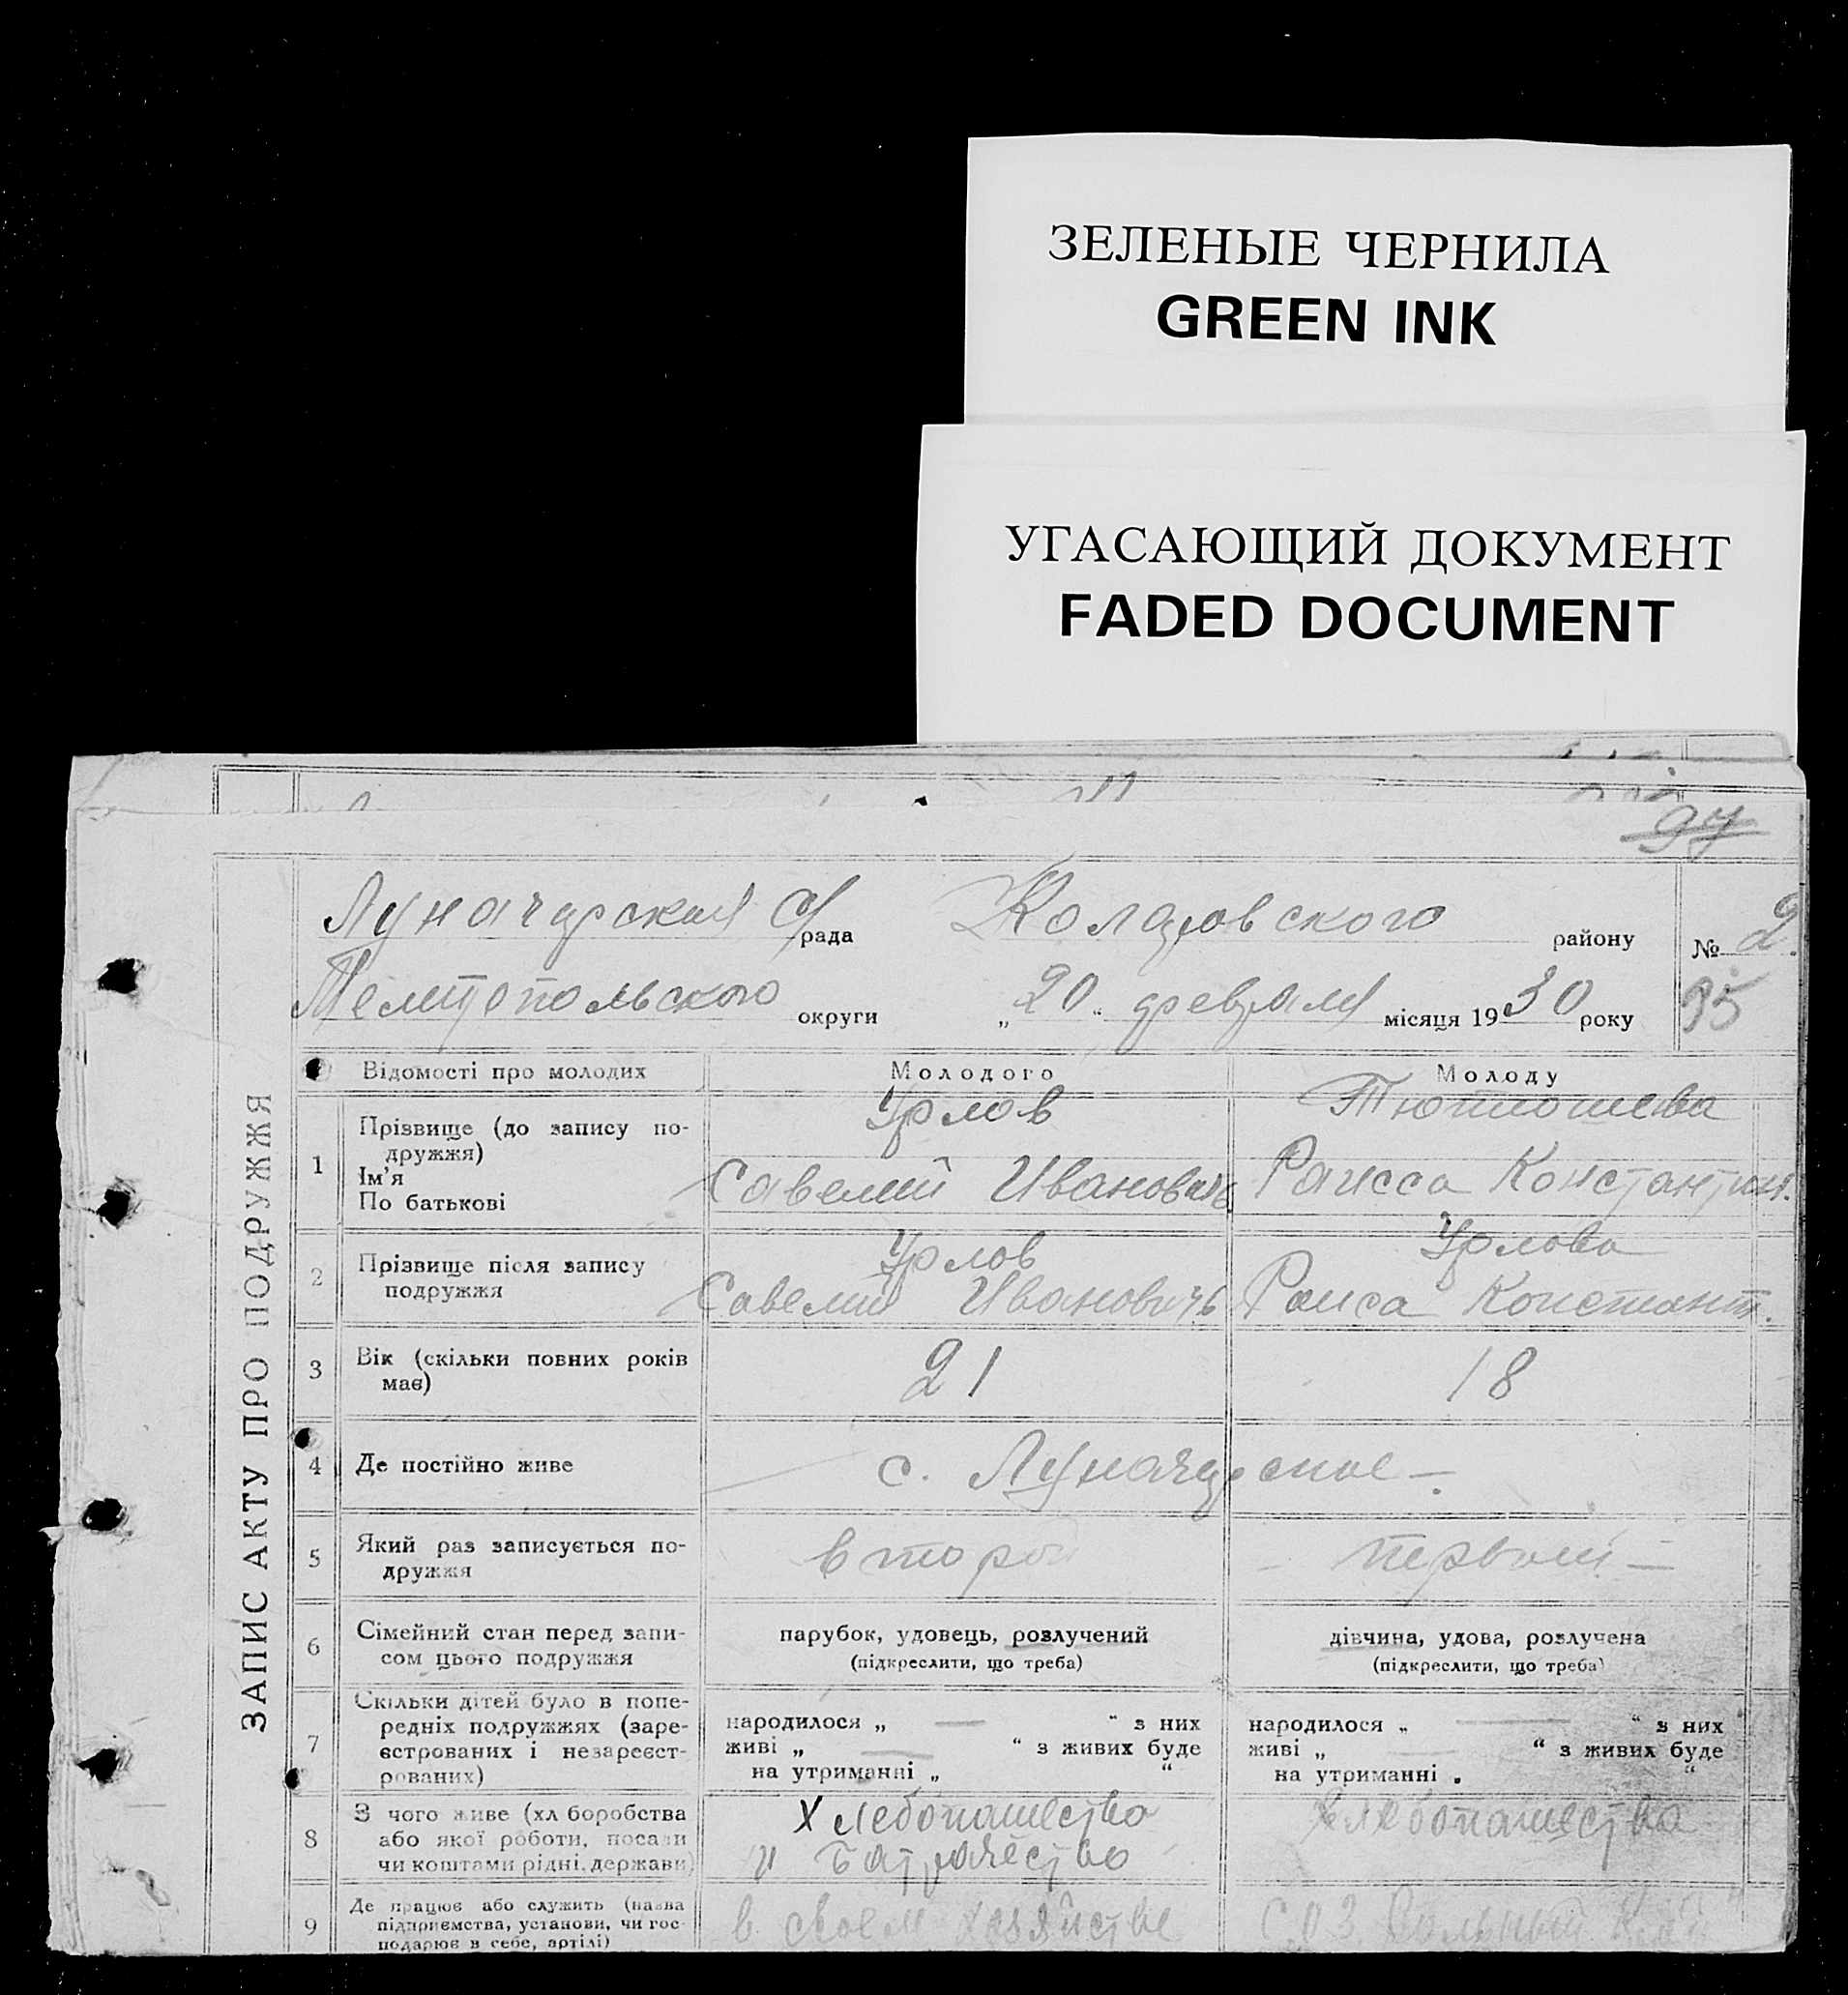 ЗЕЛЕНЫЕ ЧЕРНИЛА
GREEN INK
УГАСАЮЩИЙ ДОКУМЕНТ
FADED DOCUMENT
ЗАПИС АКТУ ПРО ПОДРУЖЖЯ
Луначарская с/рада Коларовского району № 2.
Мелитопольского округи „20“ февраля місяця 1930 року 95
Відомості про молодих Молодого Молоду
1 Прізвище (до запису по-
дружжя)
Ім'я
По батькові
Урлов
Савелий Ивановичь
Раисса Константин.
2 Прізвище після запису
подружжя
Урлов
Савелий Ивановичь
Урлова
Раиса Констант.
3 Вік (скільки повних років
має)
21 18
4 Де постійно живе с. Луначарское -
5 Який раз записується по-
дружжя
второй - первый -
6 Сімейний стан перед запи-
сом цього подружжя
парубок, удовець, розлучений
(підкреслити, що треба)
дівчина, удова, розлучена
(підкреслити, що треба)
7 Скільки дітей було в попе-
редніх подружжях (заре-
єстрованих і незареєст-
рованих)
народилося „ — “ з них
живі „ — “ з живих буде
на утриманні „ “
народилося „ — “ з них
живі „ — “ з живих буде
на утриманні „ “
8 З чого живе (хліборобства
або якої роботи, посади
чи коштами рідні, держави)
Хлебопашество
и батрачество
Хлебопашество
9 Де працює або служить (назва
підприємства, установи, чи гос-
подарює в себе, артілі)
в своем хозяйстве
С.О.З.